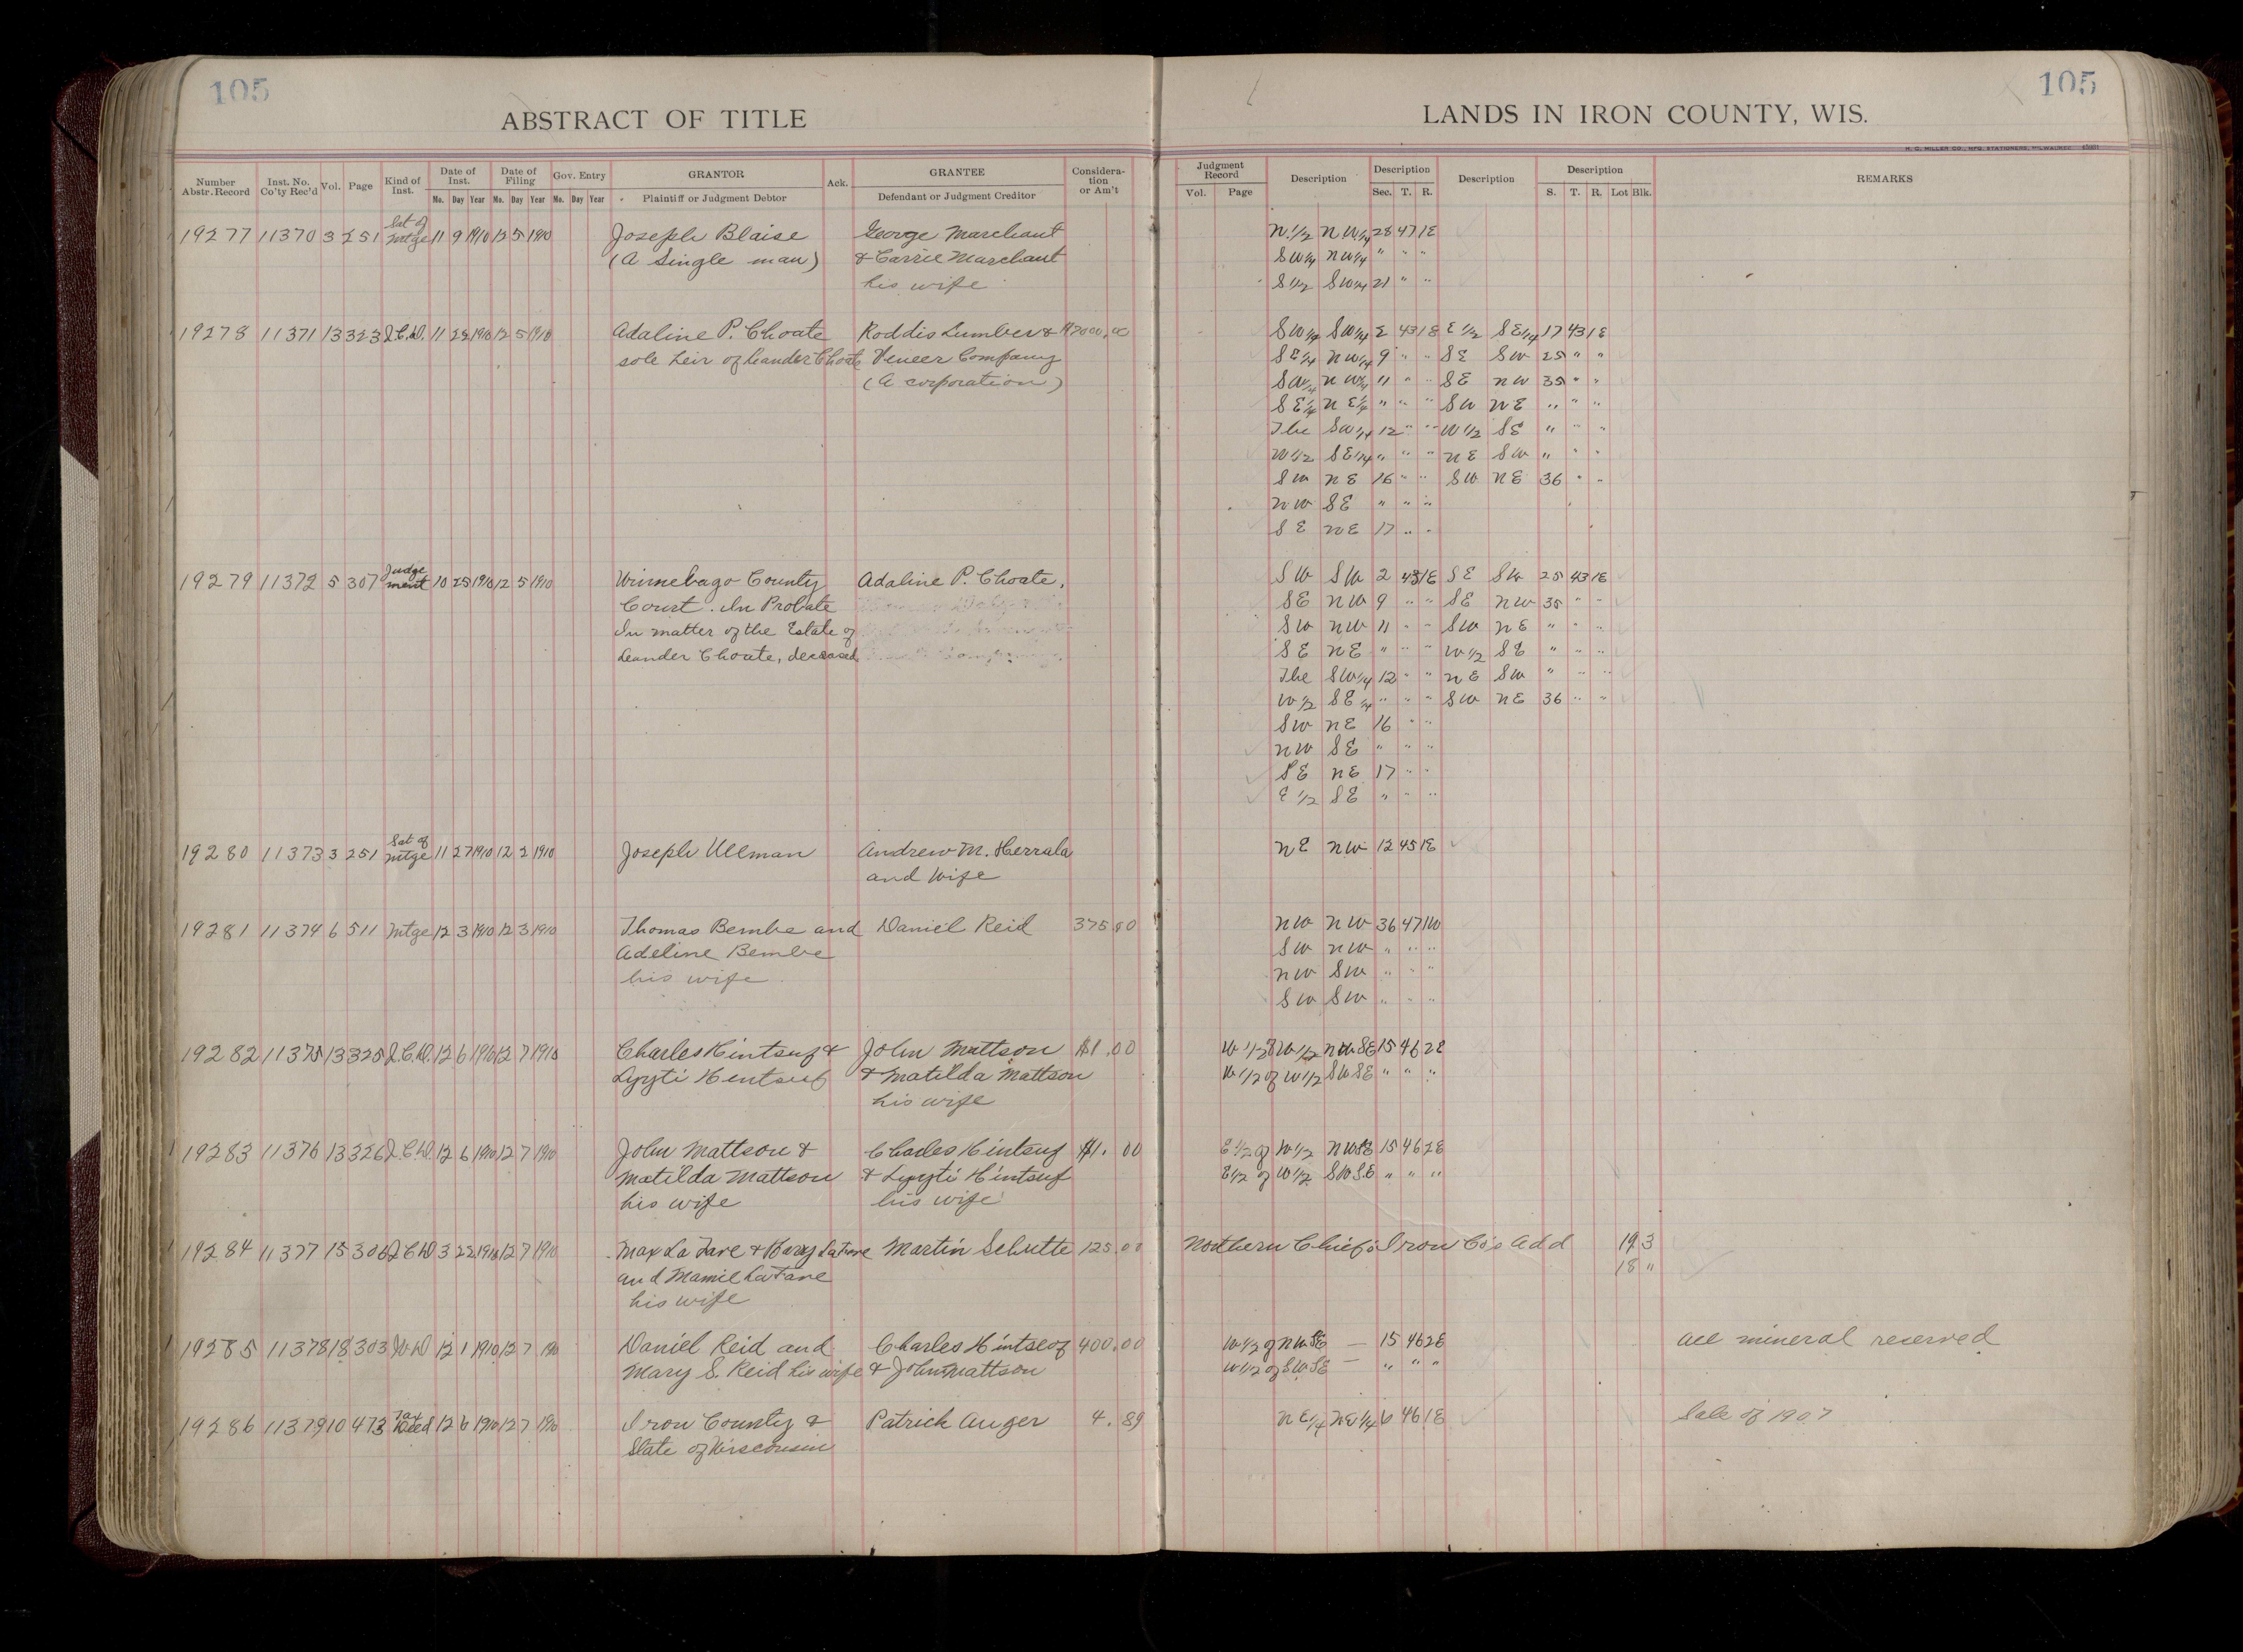 105
105
ABSTRACT OF TITLE
LANDS IN IRON COUNTY, WIS.
H. C. MILLER CO., MFG. STATIONERS, MILWAUKEE
Number Abstr. Record Inst. No. Co'ty Rec'd Vol. Page Kind of Inst. Date of Inst. Mo. Day Year Date of Filing Mo. Day Year Gov. Entry Mo. Day Year GRANTOR Plaintiff or Judgment Debtor Ack. GRANTEE Defendant or Judgment Creditor Consideration or Am't Judgment Record Vol. Page Description Description Sec. T. R. Description Description S. T. R. Lot Blk. REMARKS
19277 11370 3 251 Sat of Mtge 11 9 1910 12 5 1910 Joseph Blaise George Marchant N 1/2 NW 1/4 28 47 1E
(A Single man) & Carrie Marchant SW 1/4 NW 1/4 " " "
his wife S 1/2 SW 1/4 21 " "
19278 11371 13 323 Q.C.D. 11 1910 12 5 1910 Adaline P. Choate Roddis Lumber & 17000.00 SW 1/4 SW 1/4 2 43 1E E 1/2 SE 1/4 17 43 1E
sole heir of Leander Choate Veneer Company SE 1/4 NW 1/4 9 " " SE SW 25 " "
(A corporation) SW 1/4 NW 1/4 11 " " SE NW 35 " "
SE 1/4 NE 1/4 " " " SW NE " " "
The SW 1/4 12 " " W 1/2 SE " " "
W 1/2 SE 1/4 " " " NE SW " " "
SW NE 16 " " SW NE 36 " "
NW SE " " "
SE NE 17 " "
19279 11372 5 307 Judgement 10 25 1910 12 5 1910 Winnebago County Adaline P. Choate, SW SW 2 43 1E SE SW 25 43 1E
Court. In Probate SE NW 9 " " SE NW 35 " "
In matter of the Estate of SW NW 11 " " SW NE " " "
Leander Choate, deceased SE NE " " " W 1/2 SE " " "
The SW 1/4 12 " " NE SW " " "
W 1/2 SE 1/4 " " " SW NE 36 " "
SW NE 16 " "
NW SE " " "
SE NE 17 " "
E 1/2 SE " " "
19280 11373 3 251 Sat of Mtge 11 27 1910 12 2 1910 Joseph Ullman Andrew M. Herrala NE NW 12 45 1E
and Wife
19281 11374 6 511 Mtge 12 3 1910 12 3 1910 Thomas Bembe and Daniel Reid 375.00 NW NW 36 47 1W
Adeline Bembe SW NW " " "
his wife NW SW " " "
SW SW " " "
19282 11375 13 325 Q.C.D. 12 6 1910 12 7 1910 Charles & John Mattson $1.00 W 1/2 of W 1/2 NW SE 15 46 2E
Lyyti & Matilda Mattson W 1/2 of W 1/2 SW SE " " "
his wife
19283 11376 13 326 Q.C.D. 12 6 1910 12 7 1910 John Mattson & Charles $1.00 E 1/2 of W 1/2 NW SE 15 46 2E
Matilda Mattson & Lyyti E 1/2 of W 1/2 SW SE " " "
his wife his wife
19284 11377 15 306 Q.C.D 3 22 1910 12 7 1910 Max La Fave & Harry La Fave Martin Schutte 125.00 Northern Chief Iron Co's Add 19 3
and Mamie La Fave 18 "
his wife
19285 11378 18 303 W.D 12 1 1910 12 7 1910 Daniel Reid and Charles 400.00 W 1/2 of NW SE — 15 46 2E all mineral reserved
Mary S. Reid his wife & John Mattson W 1/2 of SW SE — " " "
19286 11379 10 473 Tax Deed 12 6 1910 12 7 1910 Iron County & Patrick Auger 4.89 NE 1/4 NE 1/4 6 46 1E Sale of 1907
State of Wisconsin